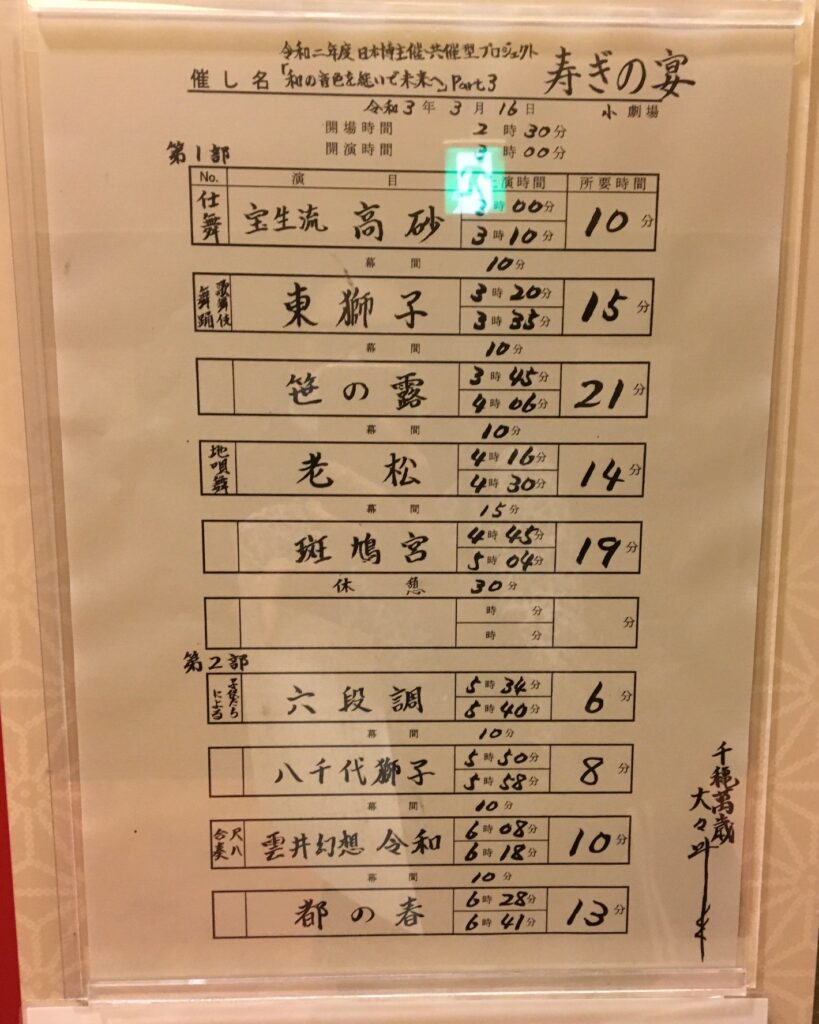 令和二年度 日本博主催・共催型プロジェクト
催し名 「和の音色を繋いで未来へ」Part3 寿ぎの宴
令和3年3月16日 小劇場
開場時間 2時30分
開演時間 3時00分
第1部
No. 演目 演時間 所要時間
仕舞 宝生流 高砂 3時00分 3時10分 10分
幕間 10分
歌舞伎舞踊 東獅子 3時20分 3時35分 15分
幕間 10分
笹の露 3時45分 4時06分 21分
幕間 10分
地唄舞 老松 4時16分 4時30分 14分
幕間 15分
斑鳩宮 4時45分 5時04分 19分
休憩 30分
時分 時分 分
第2部
子供たちによる 六段調 5時34分 5時40分 6分
幕間 10分
八千代獅子 5時50分 5時58分 8分
幕間 10分
尺八合奏 雲井幻想 令和 6時08分 6時18分 10分
幕間 10分
都の春 6時28分 6時41分 13分
千穐萬歳
大々叶